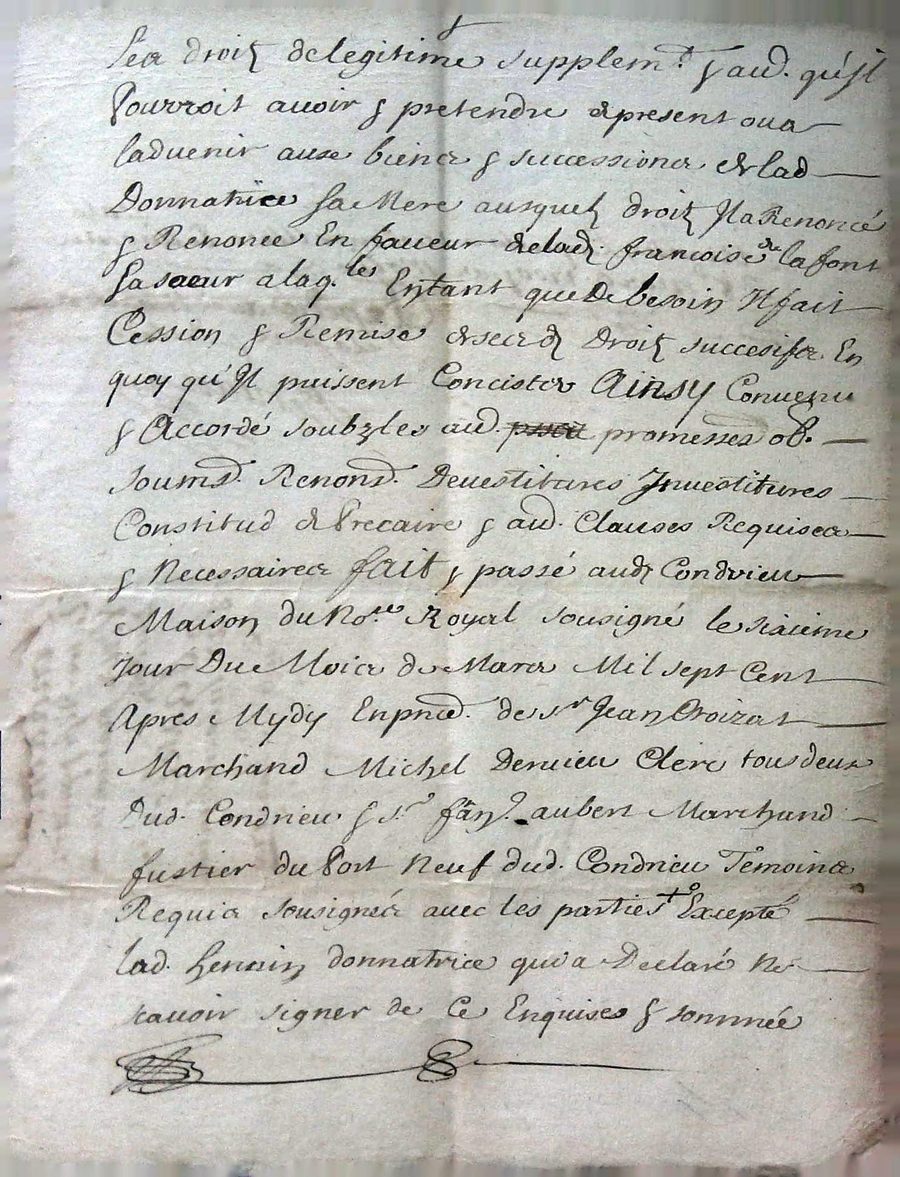 ses droitz de legitime supplem.t & aud. qu'Jl
Pourroit auoir & pretendre de present ou a
laduenir aux biens & successions de lad
Donnatrice sa Mere ausquelz droitz Jl a Renoncé
& Renonce En faueur de lad. francoise de la font
sa sœur a laq.lle Entant que De besoin Jl fait
Cession & Remise de sesd Droitz succesifs En
quoy qu'Jl puissent Concister Ainsy Conuenu
& Accordé soubz les aud. promesses ob.
soumd. Renond. Deuestitures Jnuestitures
Constitud de Precaire & aud. Clauses Requises
& Necessaires fait & passé aud Condrieu
Maison du No.re Royal sousigné le sixieme
Jour Du Mois de Mars Mil sept Cent
Apres Mydy En pnce. de sr Jean Croizat
Marchand Michel Deruieu Clerc tous deux
Dud. Condrieu & sr. frãn. aubert Marchand
fustier du Port Neuf dud. Condrieu Témoins
Requis sousignés auec les parties + Excepté
lad. donnatrice qui a Declaré Ne
scauoir signer de Ce Enquise & sommée